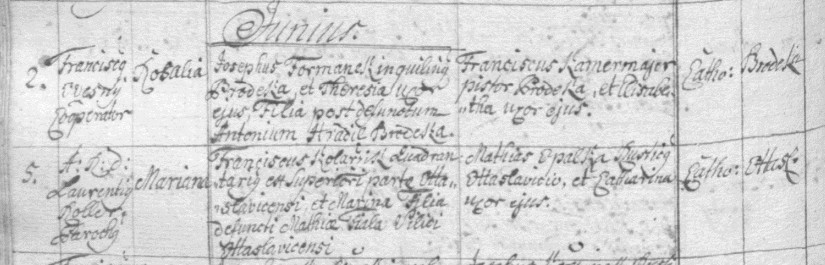 Junius.
2. Franciscq Vesely Cooperator
Rosalia
Josephus Formanek inquilinq
Brodeka, et Theresia uxor
ejus, Filia post defunctum
Antonium Hradil Brodeka.
Franciscus Kamermajer
pistor Brodeka, et Elisabe
tha uxor ejus.
Catho:
Brodek
5. A: R: D: Laurentiq Koller Parochq
Mariana
Franciscus Kolarzik Quadran
tariq ex Superiori parte Otta
slavicensi et Marina Filia
defuncti Mathiæ Fiala Villici
Ottaslavicensi
Mathias Opalka Rusticq
Ottaslavicio, et Catharina
uxor ejus.
Catho:
Ottasl: